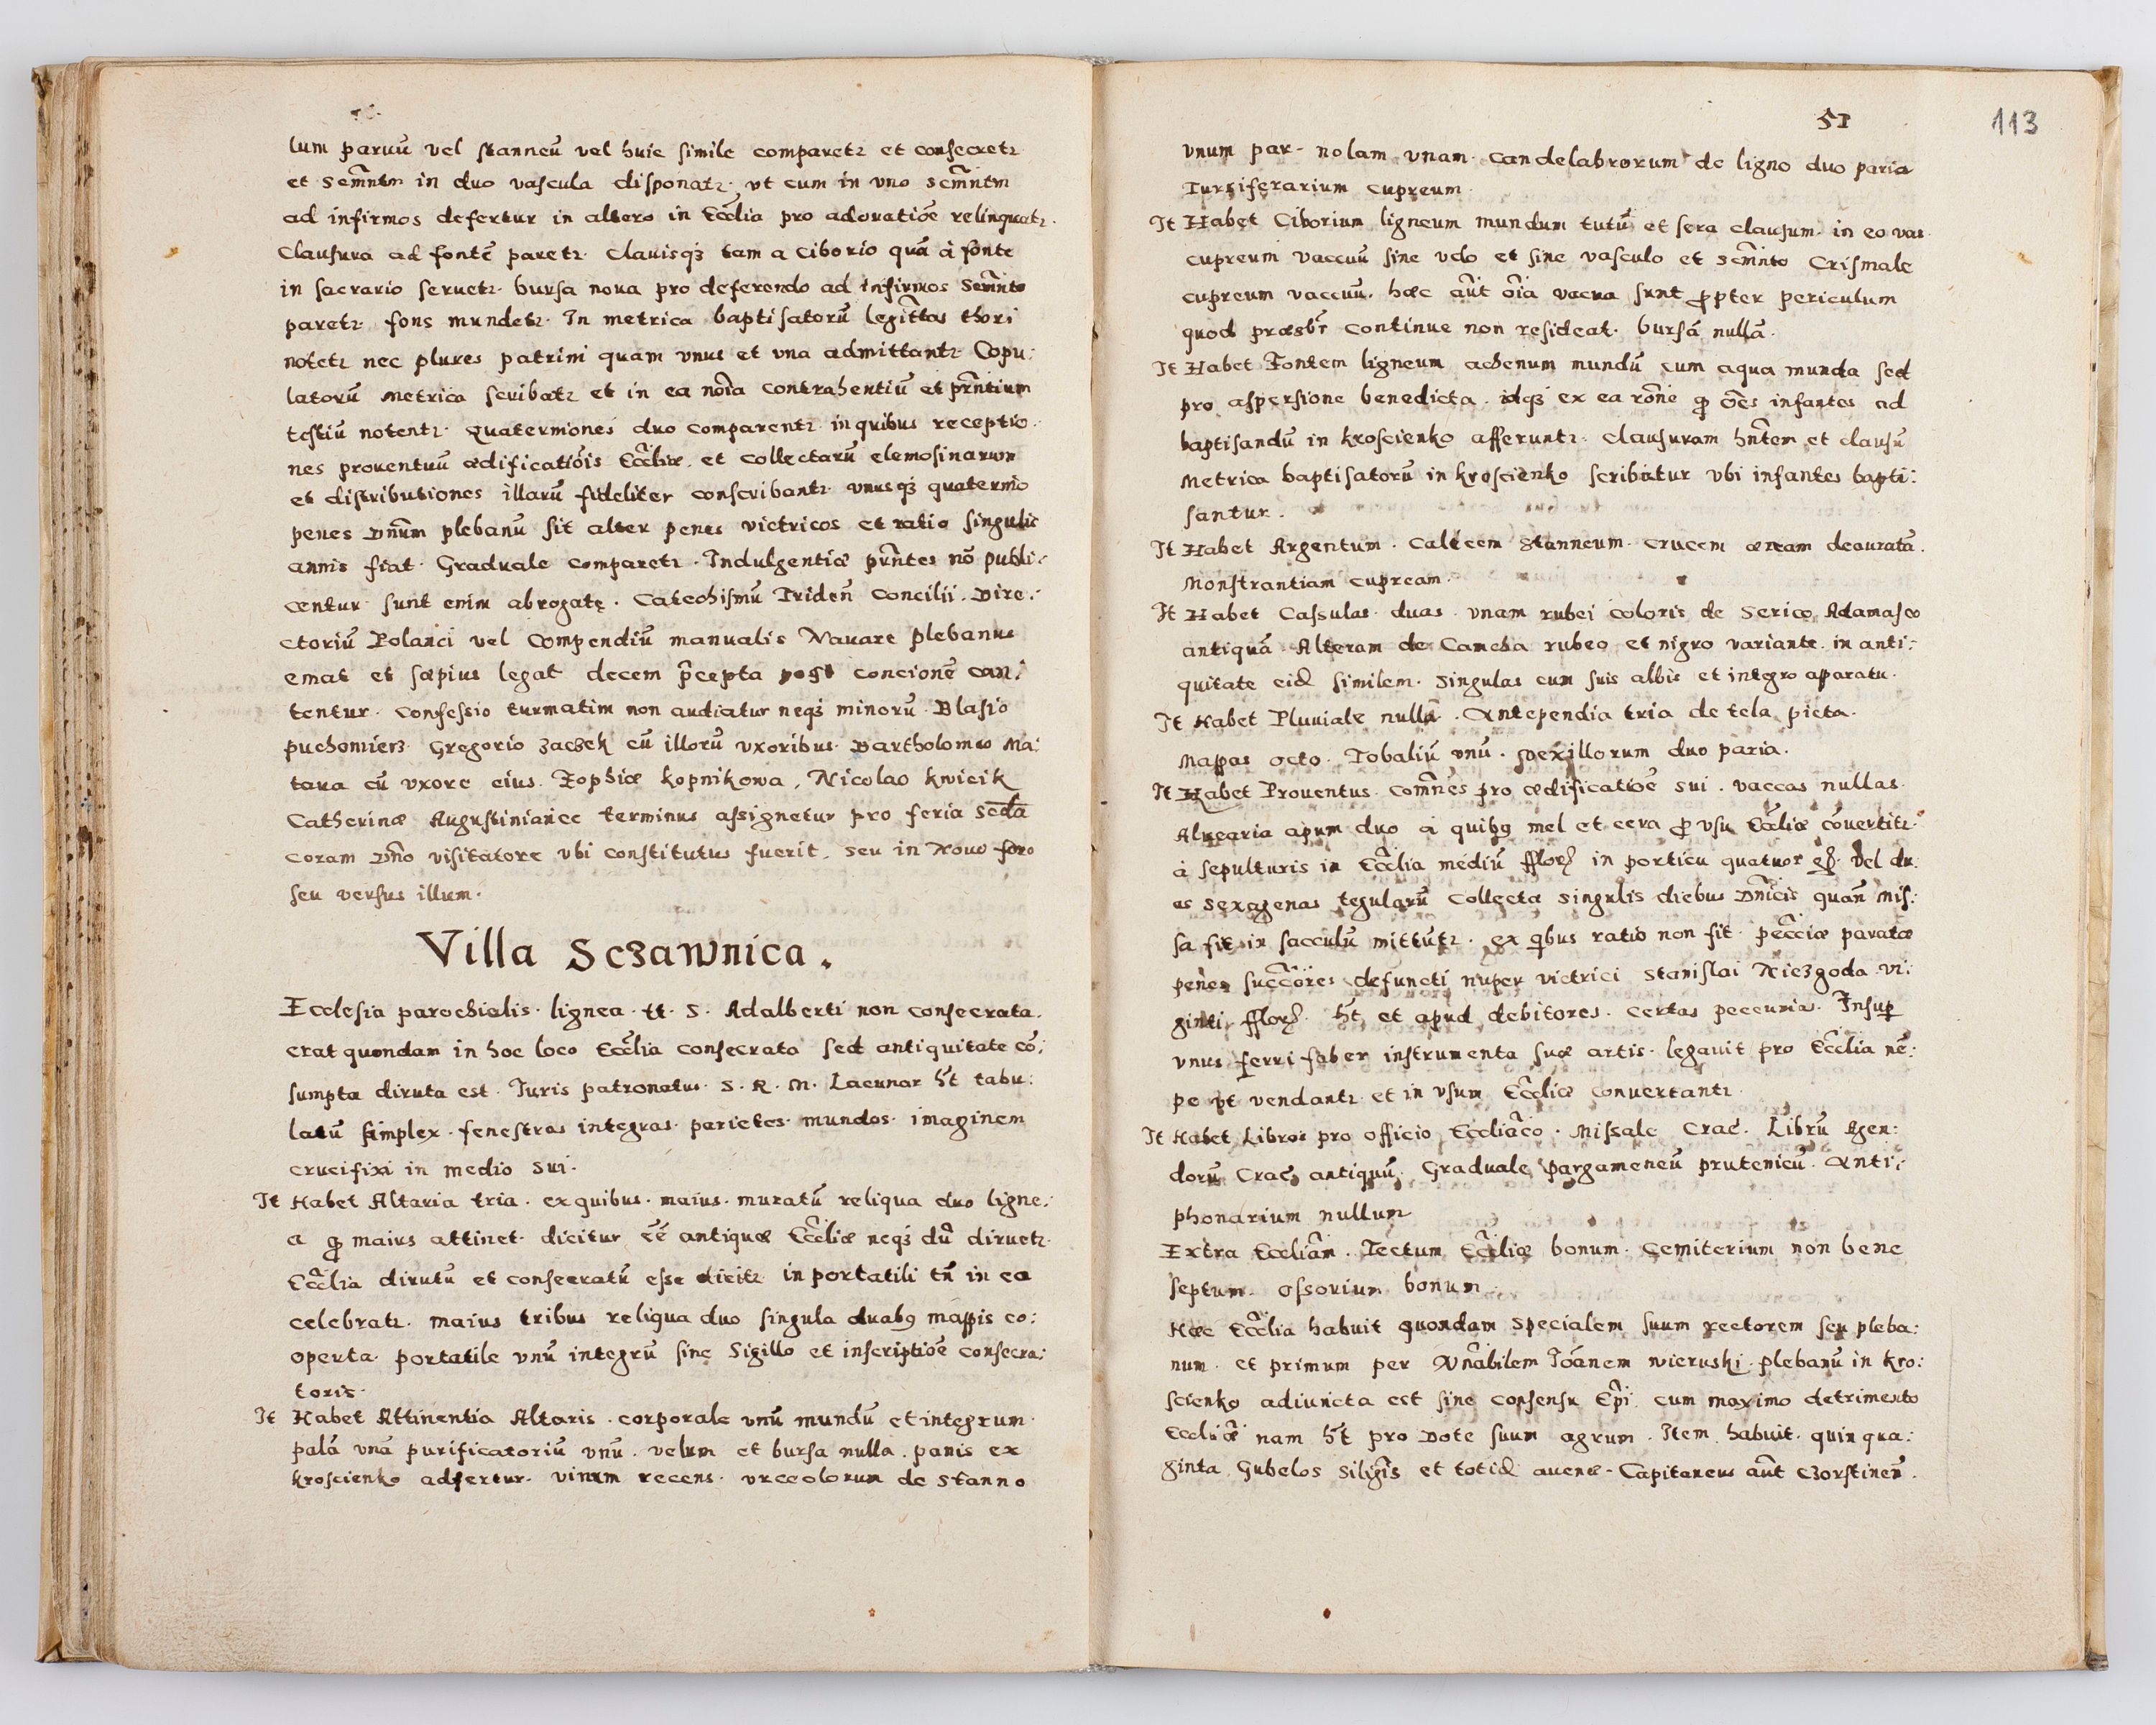 lum paruū vel stanneū vel huic simile comparetr et consecretr
et Semm̄tm in duo vascula disponatr. vt cum in vno scm̄ntm
ad infirmos defertur in altero in Eccl̄ia pro adoratiōe relinquatr.
Clausura ad fontē paretr. Clauisqȝ tam a Ciborio quā à fonte
in sacrario seruetr. bursa noua pro deferendo ad infirmos Sem̄nto
paretr. fons mundetr. In metrica baptisatorū legitt̄as thori
notetr nec plures patrini quam vnus et vna admittantr. Copu:
latorū Metrica scribatr et in ea noīa contrahentiū et prn̄tium
testiū notentr. Quaterniones duo comparentr in quibus receptio:
nes prouentuū ædificatiōis Eccl̄iæ. et Collectarū elemosinarum
et distributiones illarū fideliter conscribantr. vnusqȝ quaternio
penes Dn̄um plebanū sit alter penes victricos et ratio singulis
annis fiat. Graduale comparetr. Indulgentiæ prn̄tes nō publi:
centur sunt enim abrogatę. Catechismū Tridēn Concilii. Dire:
ctoriū Polanci vel Compendiū manualis Nauare plebanus
emat et sæpius legat decem p̄cepta post concionē can:
tentur. Confessio turmatim non audiatur neqȝ minorū. Blasio
puchomierȝ. Gregorio Zaczek cū illorū vxoribus. Bartholomeo Ma:
tara cū vxore eius. Zophiæ kopnikowa, Nicolao kwicik
Catherinæ Augustinianee terminus assignetur pro feria Scd̄a
coram Dn̄o visitatore vbi constitutus fuerit, seu in Nouo foro
seu versus illum.
Villa Sczawnica.
Ecclesia parochialis. lignea. tt. S. Adalberti non consecrata.
erat quondam in hoc loco Eccl̄ia consecrata sed antiquitate cō:
sumpta diruta est. Iuris patronatus. S. R. M. Lacunar h̄t tabu:
latū simplex. fenestras integras. parietes. mundos. imaginem
crucifixi in medio sui.
It Habet Altaria tria. ex quibus. maius. muratū reliqua duo ligne:
a ꝙ maius attinet. dicitur eē̄ antiquæ Eccl̄iæ neqȝ dū diruetr.
Eccl̄ia dirutū et consecratū esse dicitr in portatili tn̄ in ea
celebratr. maius tribus reliqua duo singula duabꝰ mappis co:
operta. portatile vnū integrū sine Sigillo et inscriptiōe consecra:
toris.
It Habet Attinentia Altaris. corporale vnū mundū et integrum.
palā vnā purificatoriū vnū. velum et bursa nulla. panis ex
kroscienko adfertur. vinum recens. vrceolorum de stanno
51 113
vnum par. nolam vnam. Candelabrorum de ligno duo paria
Turriferarium cupreum.
It Habet Ciborium ligneum mundum tutū et sera clausum. in eo vas
cupreum vaccuū sine velo et sine vasculo et scm̄nto Crismale
cupreum vaccuū. hæc aūt oīa vacua sunt ꝓpter periculum
quod præsbr̄ continue non resideat. bursā nullā.
It Habet Fontem ligneum achenum mundū cum aqua munda sed
pro aspersione benedicta. idqȝ ex ea rōne ꝙ oēs infantes ad
baptisandū in kroscienko afferuntr. clausuram hn̄tem et clausū
Metrica baptisatorū in kroscienko scribitur vbi infantes bapti:
santur.
It Habet Argentum. Calicem Stanneum. crucem æream deauratā.
Monstrantiam cupream.
It Habet Cassulas. duas. vnam rubei coloris de Serico Adamasco
antiquā. Alteram de Camcha rubeo et nigro variante. in anti:
quitate eid similem. Singulas cum suis albis et integro apparatu.
It Habet Pluuiale nullū. Antependia tria de tela picta.
Mappas octo. Tobaliū vnū. vexillorum duo paria.
It Habet Prouentus. com̄nes pro ædificatiōe sui. vaccas nullas.
Aluearia apum duo à quibꝰ mel et cera ꝓ vsu Eccl̄iæ cōuertitr.
à sepulturis in Eccl̄ia mediū fflor in porticu quatuor gr. vel du:
as sexagenas tegularū Collecta singulis diebus Dn̄icis quan̄ mis:
sa fit in sacculū mittūtr. ex qibus ratio non fit. pecc̄iæ paratæ
penes succōres defuncti nuper victrici Stanislai Niezgoda. vi:
ginti fflor. h̄t et apud debitores. certas peccunias. Insuꝑ
vnus ferri faber instrumenta suæ artis. legauit pro Eccl̄ia nē:
pe vt vendantr et in vsum Eccl̄iæ conuertantr.
It Habet Libros pro officio Eccliāco. Missale Crac̄. Librū Agen:
dorū Crac̄ antiquū. Graduale pargameneū prutenicū. Anti:
phonarium nullum
Extra Eccliām. Tectum Eccl̄iæ bonum. Cemiterium non bene
septum. ossorium bonum.
Hæc Eccl̄ia habuit quondam Specialem suum rectorem seu pleba:
num. et primum per Vn̄abilem Ioānem wieruski. plebanū in kro:
scienko adiuncta est sine consensu Ep̄i cum maximo detrimento
Eccliǣ nam h̄t pro Dote suum agrum. Item habuit. quinqua:
ginta Gubelos Siligīs et totid auenæ. Capitaneus aūt Czorstinen̄.